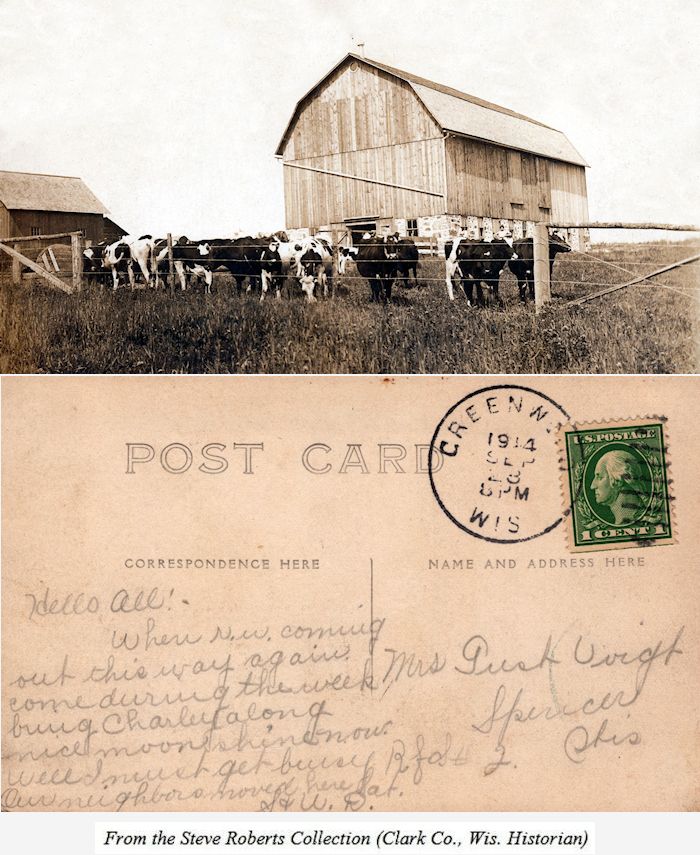 POST CARD
GREENW
1914
SEP
23
8PM
WIS
U.S. POSTAGE
1 CENT 1
CORRESPONDENCE HERE
NAME AND ADDRESS HERE
Hello All!-
When r.u. coming
out this way again.
come during the week
bring Charley along
nice moonshine now.
Well I must get buisy
Our neighbors moved here Sat.
Mrs Voigt
Spencer
Wis
R.f.d. # 2.
From the Steve Roberts Collection (Clark Co., Wis. Historian)